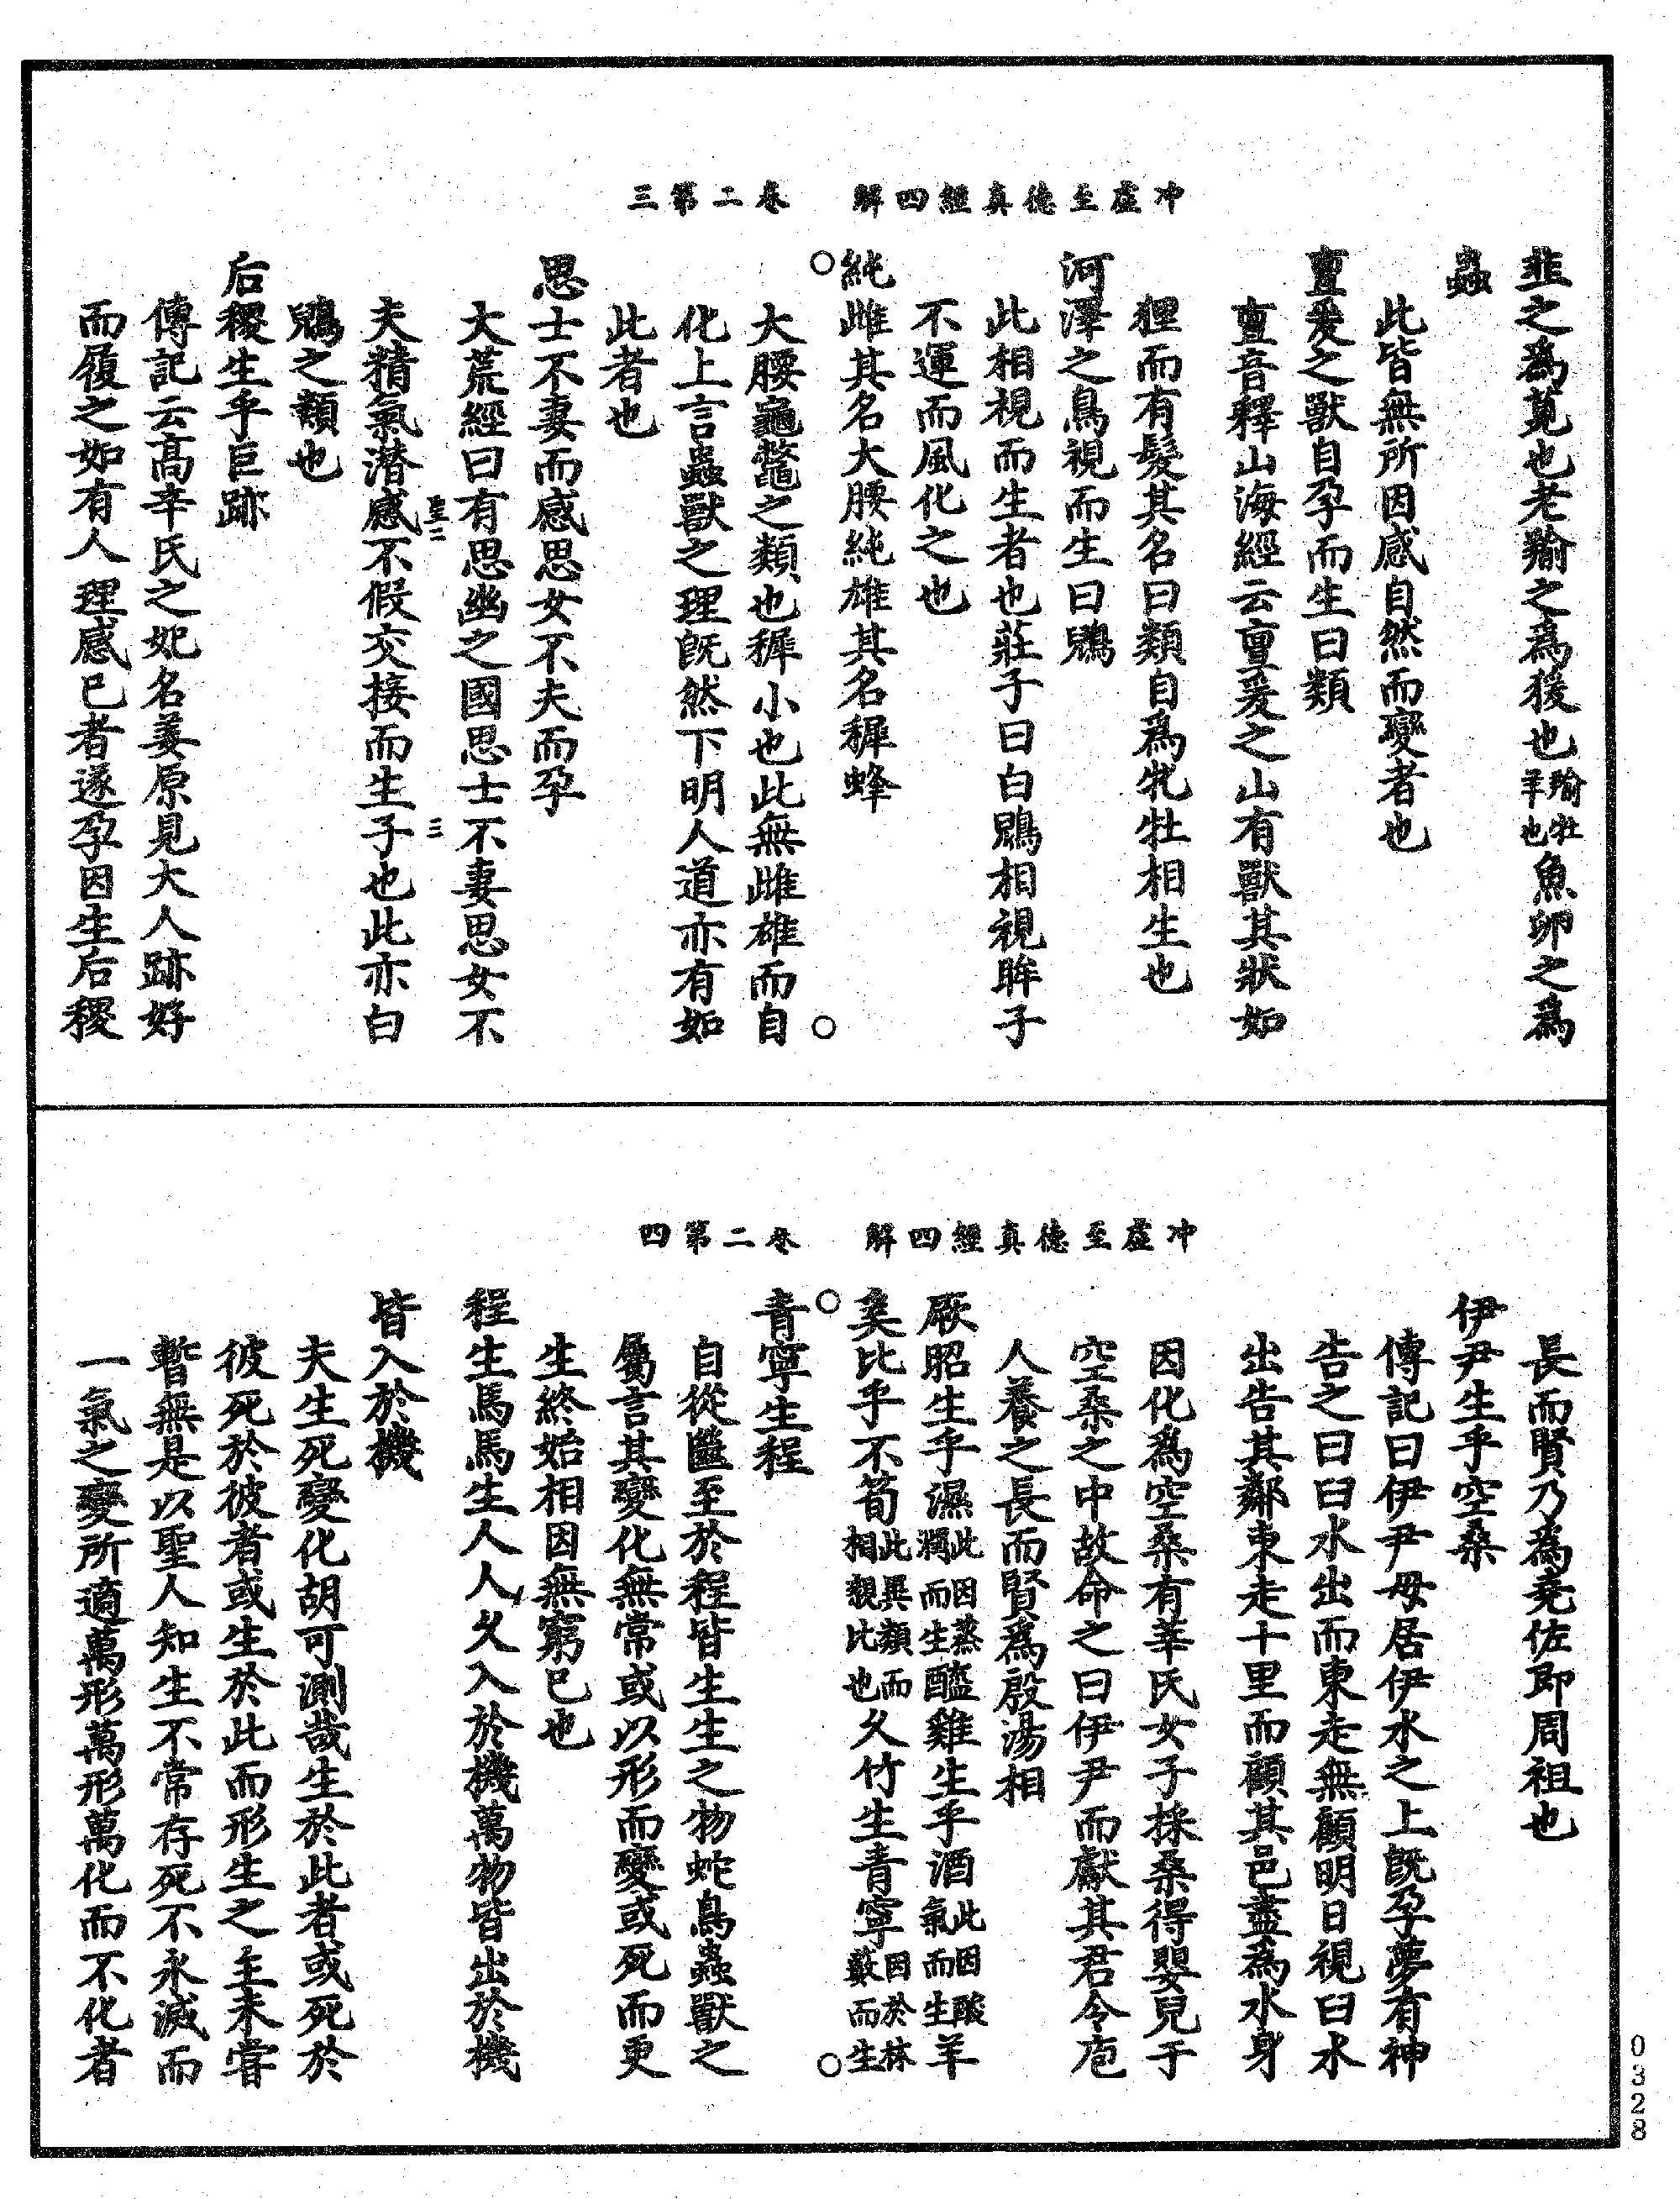 冲虛至德真經四解　卷二第三
韭之爲莧也老羭之爲猨也羭牡羊也魚卵之爲
蟲
此皆無所因感自然而變者也
亶爰之獸自孕而生曰類
亶音釋山海經云亶爰之山有獸其狀如
狸而有髮其名曰類自爲牝牡相生也
河澤之鳥視而生曰鶂
此相視而生者也莊子曰白鶂相視眸子
不運而風化之也
純雌其名大腰純雄其名穉蜂
大腰龜鼈之類也穉小也此無雌雄而自
化上言蟲獸之理旣然下明人道亦有如
此者也
思士不妻而感思女不夫而孕
大荒經曰有思幽之國思士不妻思女不
至二　三
夫精氣潛感不假交接而生子也此亦白
鶂之類也
后稷生乎巨跡
傳記云高辛氏之妃名姜原見大人跡好
而履之如有人理感己者遂孕因生后稷
冲虛至德真經四解　卷二第四
長而賢乃爲堯佐即周祖也
伊尹生乎空桑
傳記曰伊尹母居伊水之上旣孕夢有神
告之曰臼水出而東走無顧明日視臼水
出告其鄰東走十里而顧其邑盡爲水身
因化爲空桑有莘氏女子採桑得嬰兒于
空桑之中故命之曰伊尹而獻其君令庖
人養之長而賢爲殷湯相
厥昭生乎濕此因蒸潤而生醯雞生乎酒此因酸氣而生羊
奚比乎不筍此異類而相親比也久竹生青寧因於林藪而生
青寧生程
自從䘌至於程皆生生之物蛇鳥蟲獸之
屬言其變化無常或以形而變或死而更
生終始相因無窮已也
程生馬馬生人人久入於機萬物皆出於機
皆入於機
夫生死變化胡可測哉生於此者或死於
彼死於彼者或生於此而形生之主未嘗
暫無是以聖人知生不常存死不永滅而
一氣之變所適萬形萬形萬化而不化者
0328